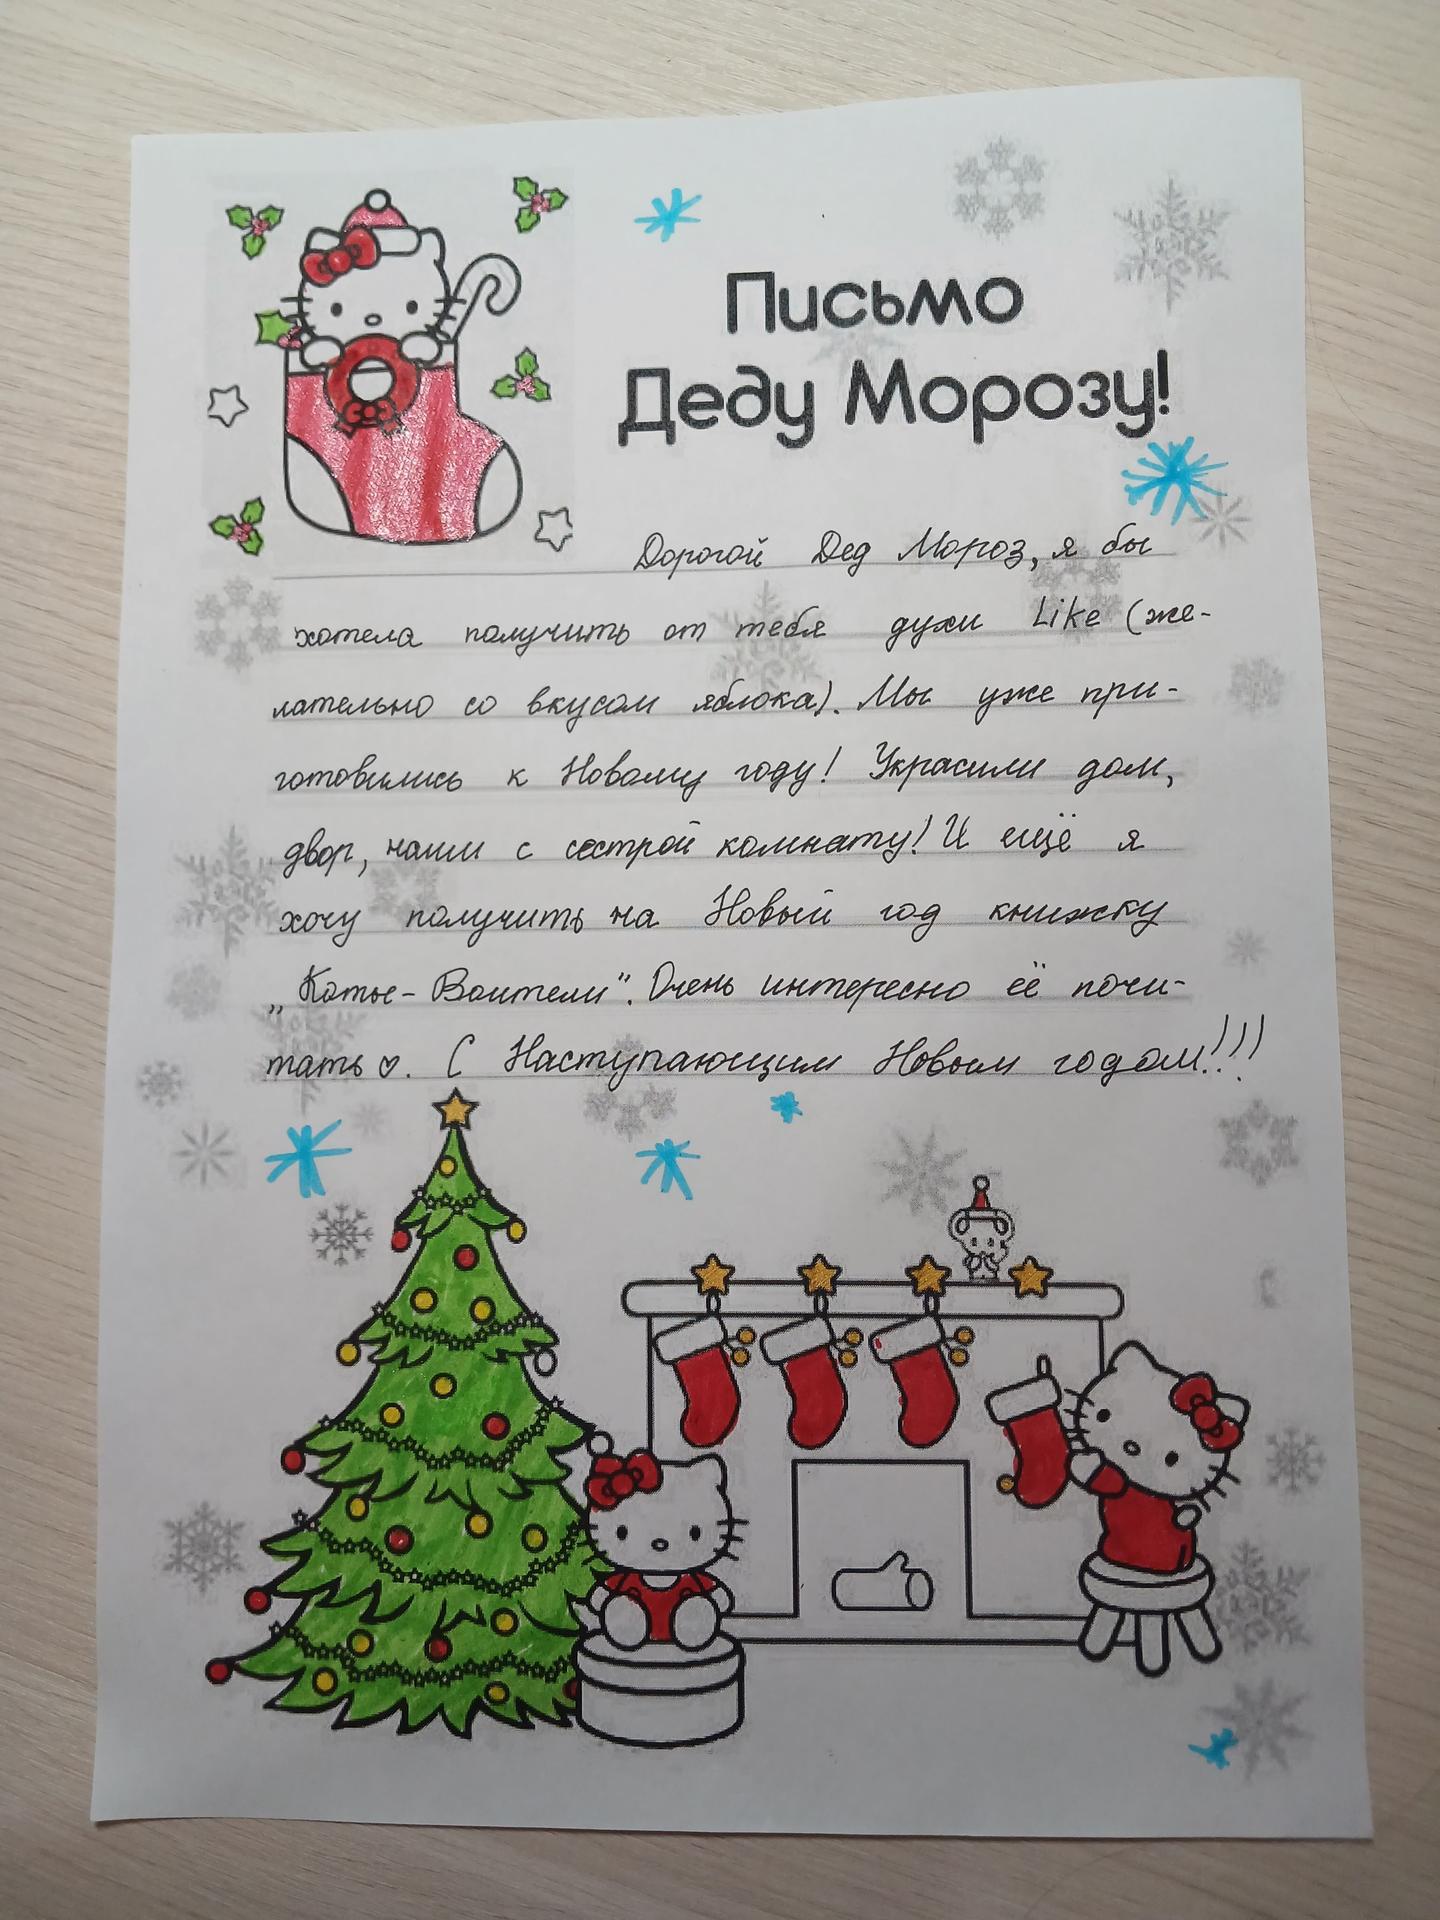 Письмо
Деду Морозу!
Дорогой Дед Мороз, я бы
хотела получить от тебя духи Like (же-
лательно со вкусом яблока). Мы уже при-
готовились к Новому году! Украсили дом,
двор, нашу с сестрой комнату! И ещё я
хочу получить на Новый год книжку
„Коты-Воители". Очень интересно её почи-
тать♡. С Наступающим Новым годом!!!